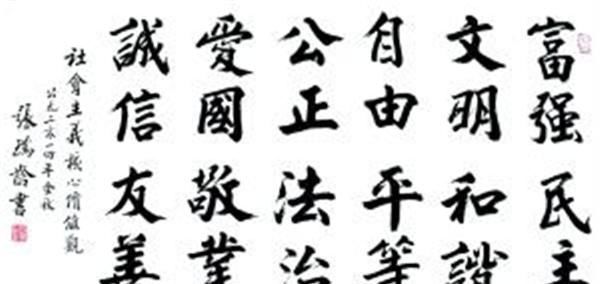 富强民主
文明和諧
自由平等
公正法治
愛國敬業
誠信友善
社會主義核心價值觀
公元二零一四年金秋
張 書